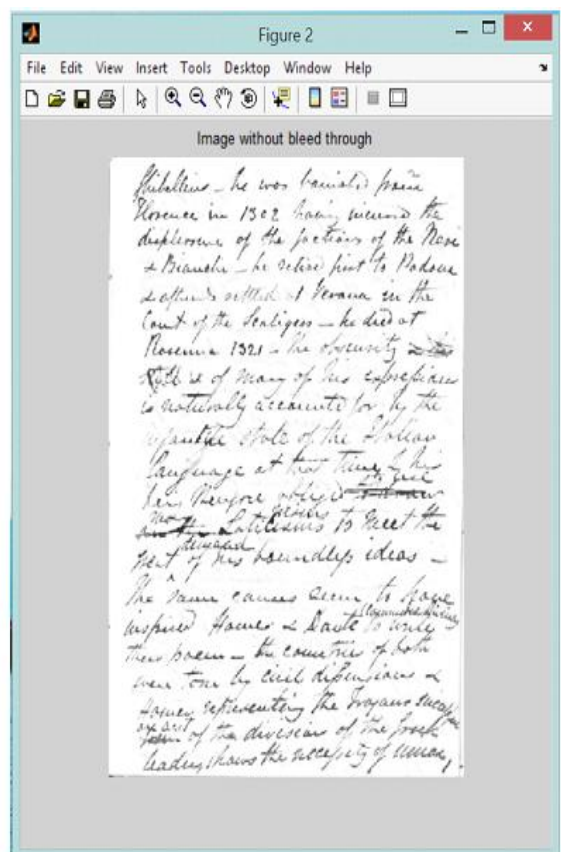 Figure 2
File Edit View Insert Tools Desktop Window Help
Image without bleed through
Ghibellins - he was banished from
Florence in 1302 having incurred the
displeasure of the factions of the Neri
& Bianchi - he retired first to Padova
& afterwds settled at Verona in the
Court of the Scaligers - he died at
Ravenna 1321 - The obscurity
of many of his expressions
is naturally accounted for by the
infantile state of the Italian
language at that time & his
being therefore obliged to use
Latinisms to meet the
demand
of his boundless ideas -
The same causes seem to have
inspired Homer & Dante to write
their poem - the countries of both
were torn by civil dissensions &
Homer representing the Trojans
of the division of the Greek
leaders shows the necessity of union,